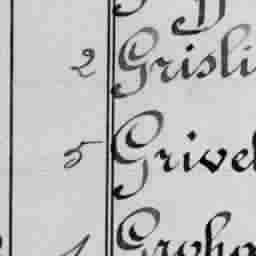 2 Grisli
5 Grivel
Groho